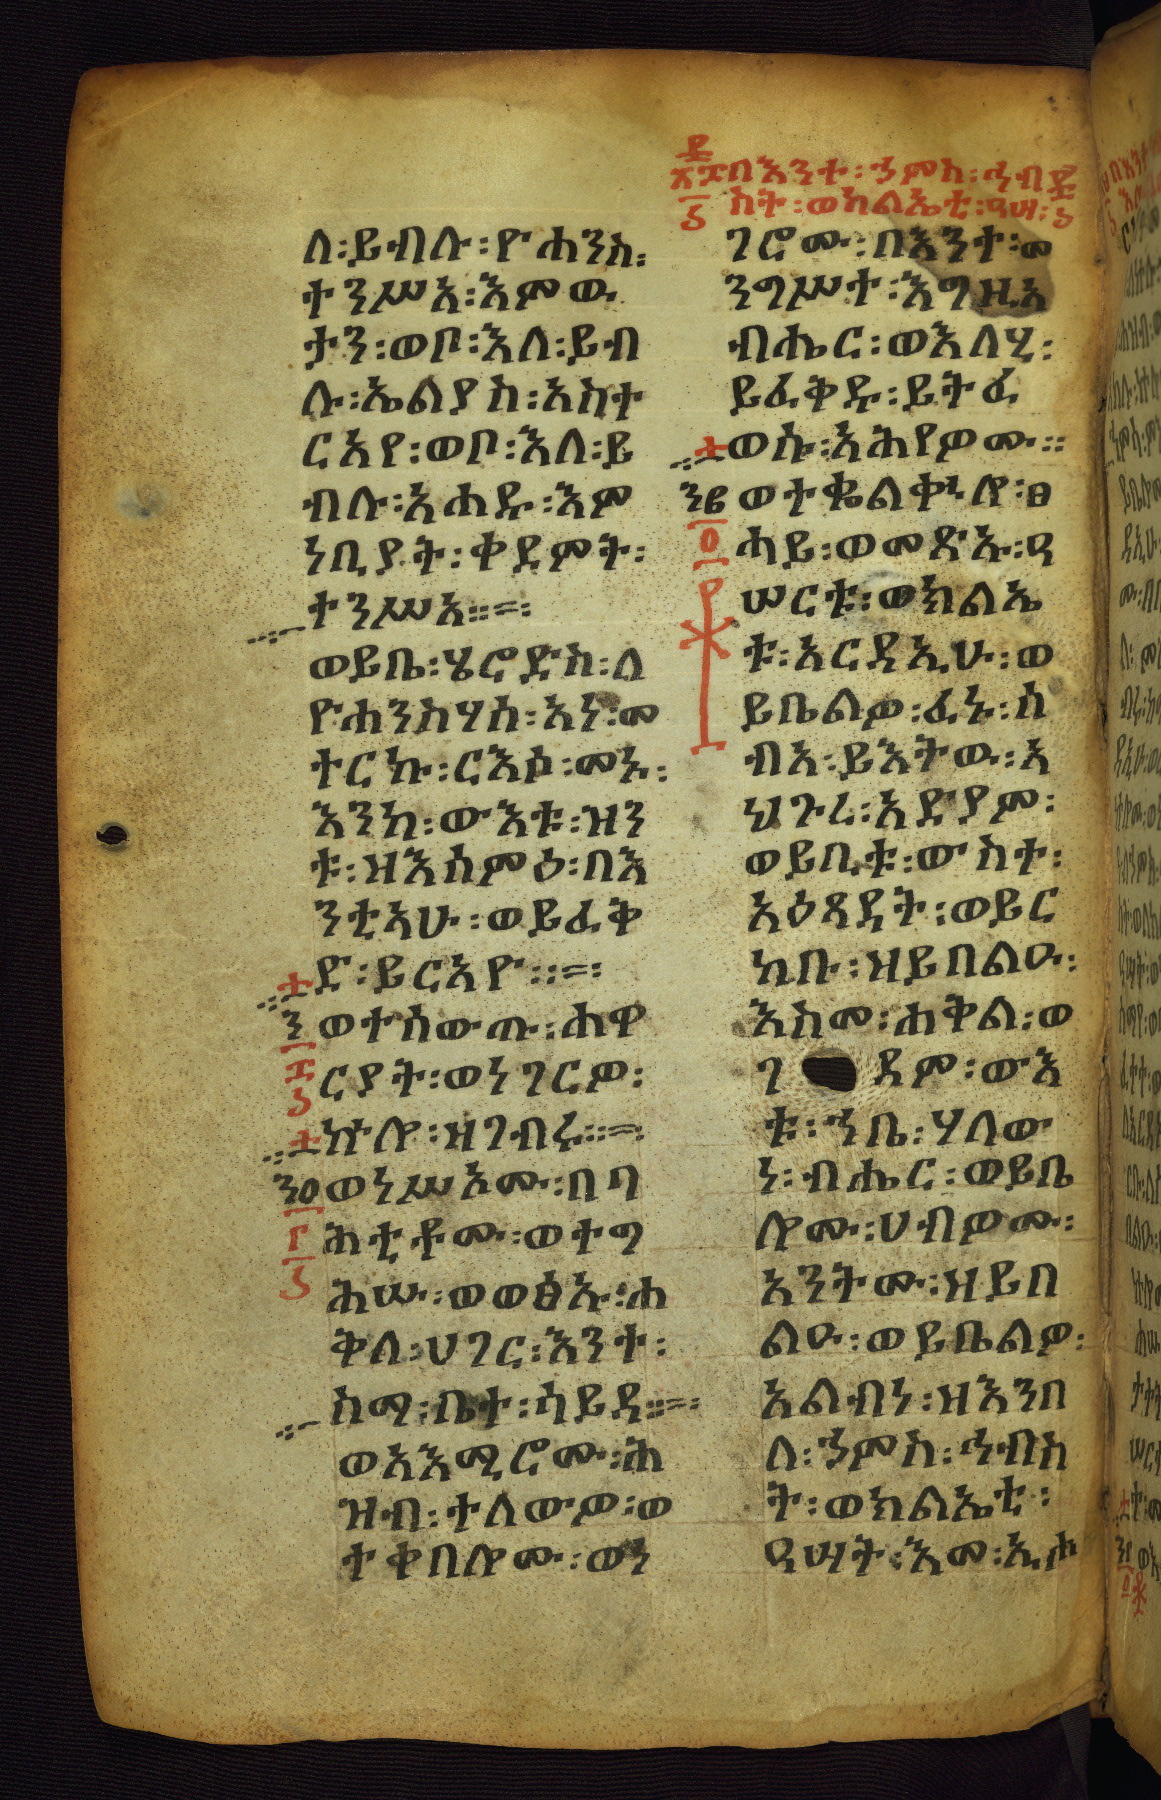 በእንተ፡ኀምስ፡ኀብ
ስት፡ወክልኤቲ፡ዓሣ፡
ለ፡ይብሉ፡ዮሐንስ፡
ተንሥአ፡እምው
ታን፡ወቦ፡እለ፡ይብ
ሉ፡ኤልያስ፡አስተ
ርአየ፡ወቦ፡እለ፡ይ
ብሉ፡አሐዱ፡እም
ነቢያት፡ቀደምት፡
ተንሥአ።=፡
ወይቤ፡ሄሮድስ፡ለ
ዮሐንስሃሰ፡አነ፡መ
ተርኩ፡ርእሶ፡መኑ፡
እንከ፡ውእቱ፡ዝን
ቱ፡ዝእሰምዕ፡በእ
ንቲአሁ፡ወይፈቅ
ድ፡ይርአዮ።=፡
ወተሰውጡ፡ሐዋ
ርያት፡ወነገርዎ፡
ኵሎ፡ዘገብሩ።=፡
ወነሥኦሙ፡በባ
ሕቲቶሙ፡ወተግ
ሕሡ፡ወወፅኡ፡ሐ
ቅለ፡ሀገር፡እንተ፡
ስማ፡ቤተ፡ሳይዳ።=፡
ወአእሚሮሙ፡ሕ
ዝብ፡ተለውዎ፡ወ
ተቀበሎሙ፡ወነ
ገሮሙ፡በእንተ፡መ
ንግሥተ፡እግዚአ
ብሔር፡ወእለሂ፡
ይፈቅዱ፡ይትፈ
ወሱ፡አሕየዎሙ።
ወተቈልቈለ፡ፀ
ሓይ፡ወመጽኡ፡ዓ
ሠርቱ፡ወክልኤ
ቱ፡አርዳኢሁ፡ወ
ይቤልዎ፡ፈኑ፡ሰ
ብአ፡ይእትው፡አ
ህጉረ፡አድያም፡
ወይቢቱ፡ውስተ፡
አዕጻዳት፡ወይር
ከቡ፡ዘይበልዑ፡
እስመ፡ሐቅል፡ወ
ገዳም፡ውእ
ቱ፡ኀቤ፡ሃለው
ነ፡ብሔር፡ወይቤ
ሎሙ፡ሀብዎሙ፡
አንትሙ፡ዘይበ
ልዑ፡ወይቤልዎ፡
አልብነ፡ዘእንበ
ለ፡ኀምስ፡ኀብስ
ት፡ወክልኤቲ፡
ዓሣት፡እመ፡ኢሐ